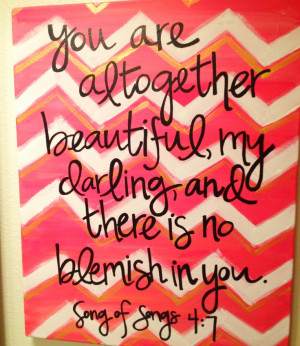 you are
altogether
beautiful, my
darling, and
there is no
blemish in you.
Song of Songs 4:7